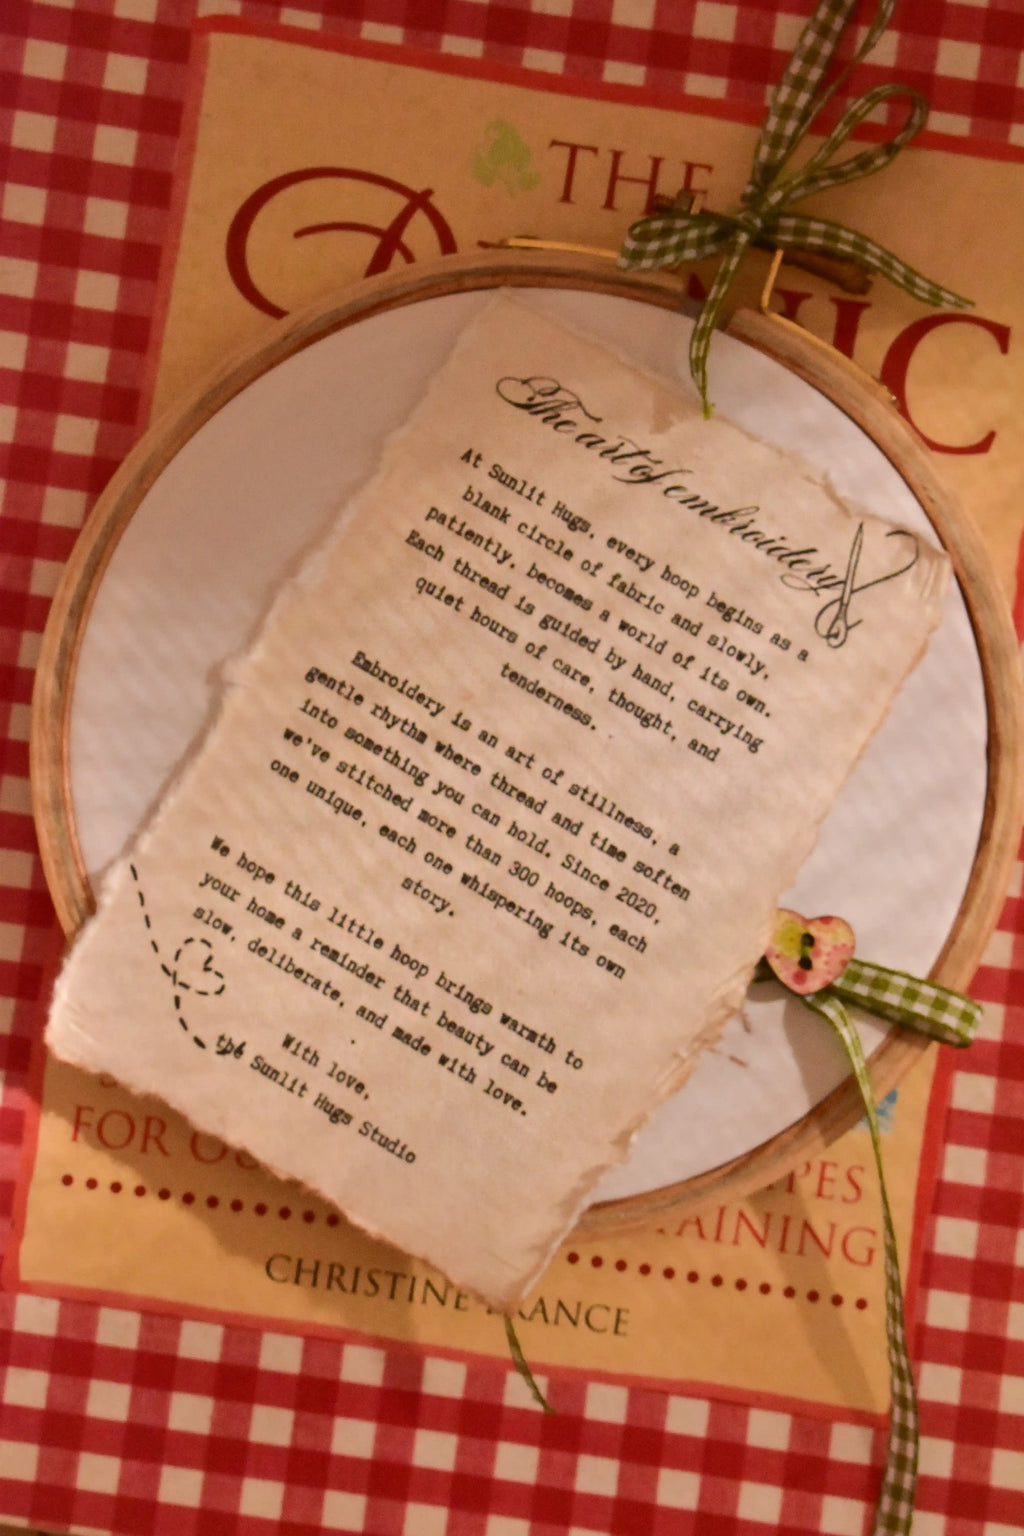 THE
The art of embroidery
At Sunlit Hugs, every hoop begins as a
blank circle of fabric and slowly,
patiently, becomes a world of its own.
Each thread is guided by hand, carrying
quiet hours of care, thought, and
tenderness.
Embroidery is an art of stillness, a
gentle rhythm where thread and time soften
into something you can hold. Since 2020,
we've stitched more than 300 hoops, each
one unique, each one whispering its own
story.
We hope this little hoop brings warmth to
your home a reminder that beauty can be
slow, deliberate, and made with love.
With love,
the Sunlit Hugs Studio
FOR
CHRISTINE